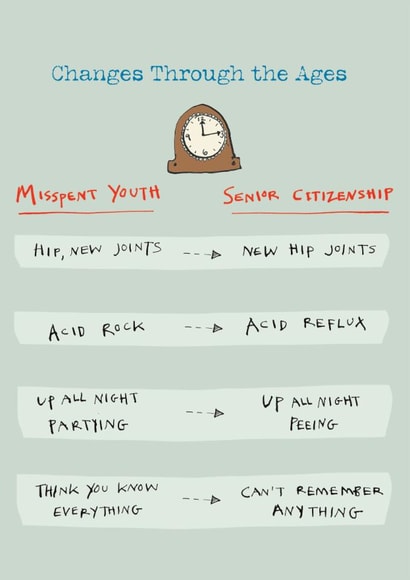 Changes Through the Ages
12
3
6
9
MISSPENT YOUTH
SENIOR CITIZENSHIP
HIP, NEW JOINTS
NEW HIP JOINTS
ACID ROCK
ACID REFLUX
UP ALL NIGHT
PARTYING
UP ALL NIGHT
PEEING
THINK YOU KNOW
EVERYTHING
CAN'T REMEMBER
ANYTHING